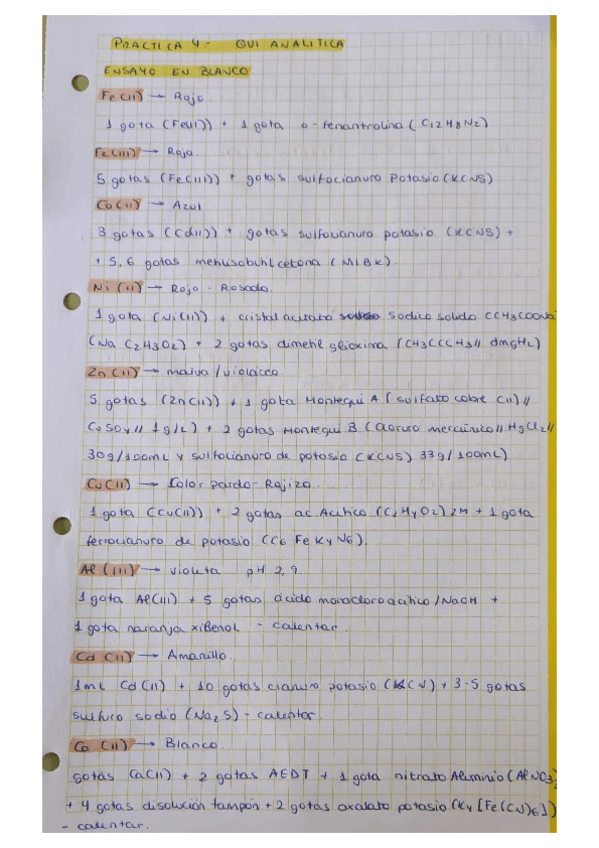 PRACTICA 4 - QUI ANALITICA
ENSAYO EN BLANCO
Fe(II) → Rojo.
1 gota (Fe(II)) + 1 gota o-fenantrolina (C12H8N2)
Fe(III) → Rojo.
5 gotas (Fe(III)) + gotas sulfocianuro Potasio (KCNS)
Co(II) → Azul
3 gotas (Cd(II)) + gotas sulfocianuro potasio (KCNS) +
+ 5,6 gotas metilisobutilcetona (MIBK).
Ni (II) → Rojo - Rosado.
1 gota (Ni(II)) + cristal acetato sodico solido CCH3COONa
(Na C2H3O2) + 2 gotas dimetil glioxima (CH3CCCH3// dmgH2)
Zn (II) → malva / violaceo.
5 gotas (Zn(II)) + 1 gota Montequi A (sulfato cobre (II) //
CuSO4 // 1g/L) + 2 gotas Montequi B (Cloruro mercurico // HgCl2 //
30g/100mL y sulfocianuro de potasio (KCNS) 33g/100mL)
Cu(II) → Color pardo-Rojizo.
1 gota (Cu(II)) + 2 gotas ac Acetico (C2H4O2) 2M + 1 gota
ferrocianuro de potasio (C6 Fe K4 N6).
Al (III) → violeta pH 2,9.
1 gota Al(III) + 5 gotas ácido monocloroacético /NaOH +
1 gota naranja xilenol - calentar.
Cd (II) → Amarillo.
1mL Cd(II) + 10 gotas cianuro potasio (KCN) + 3-5 gotas
sulfuro sodio (Na2S) - calentar.
Ca (II) → Blanco.
gotas Ca(II) + 2 gotas AEDT + 1 gota nitrato Aluminio (AlNO3)
+ 4 gotas disolución tampón + 2 gotas oxalato potasio (K4[Fe(CN)6])
- calentar.